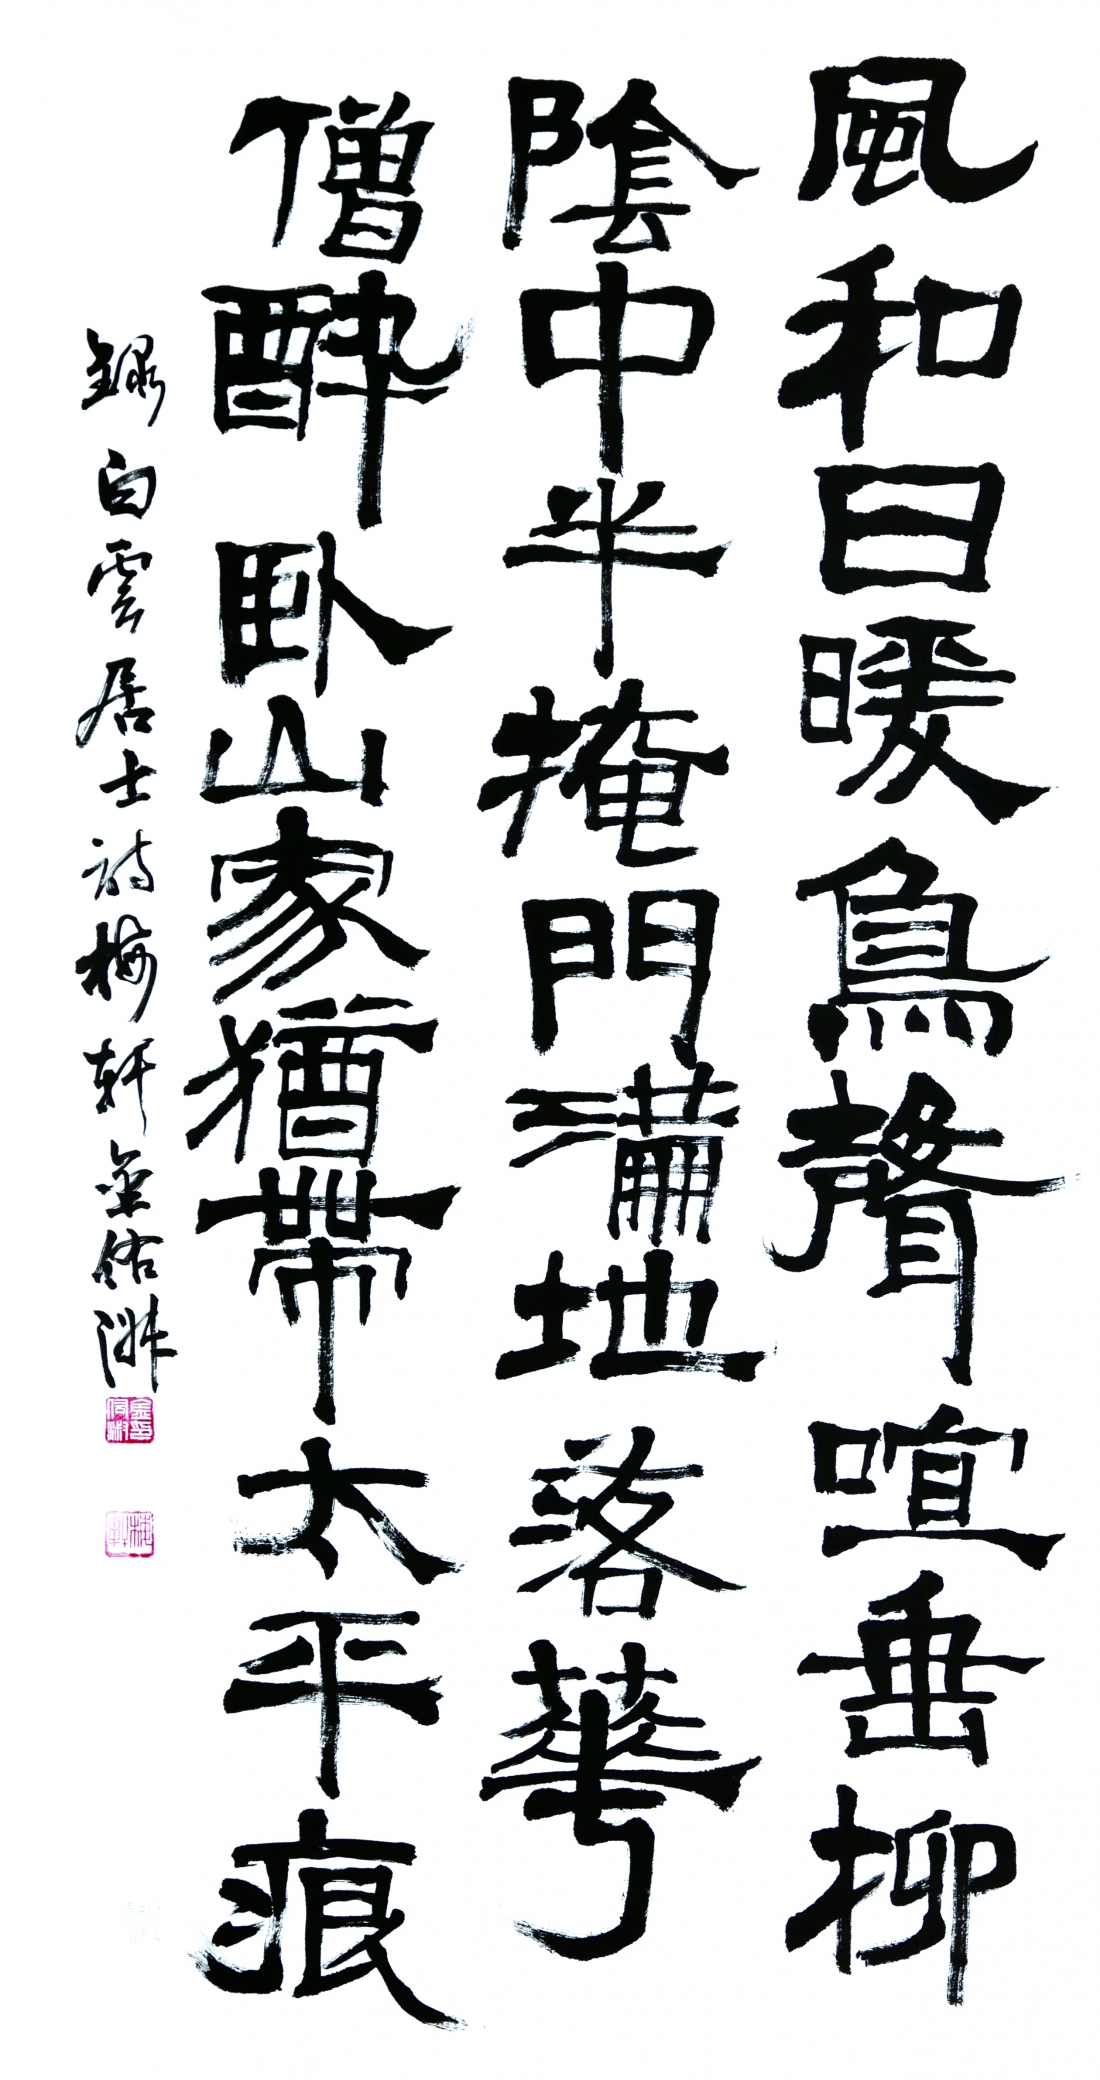 風和日暖鳥聲喧垂柳
陰中半掩門滿地落華
僧醉臥山家猶帶太平痕
錄白雲居士詩梅軒金佑